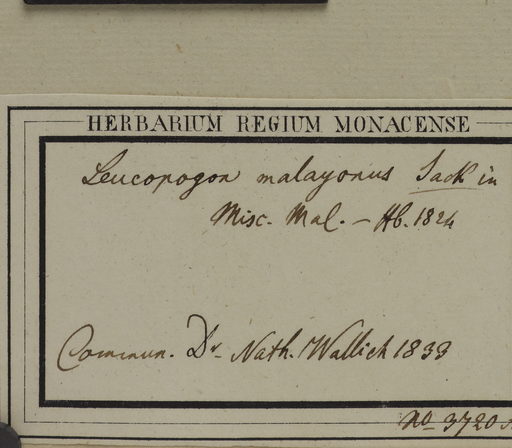 HERBARIUM REGIUM MONACENSE
Leucopogon malayonus Jack in
Misc. Mal. – Hb. 1824
Commun. Dr. Nath. Wallich 1833
No 3720